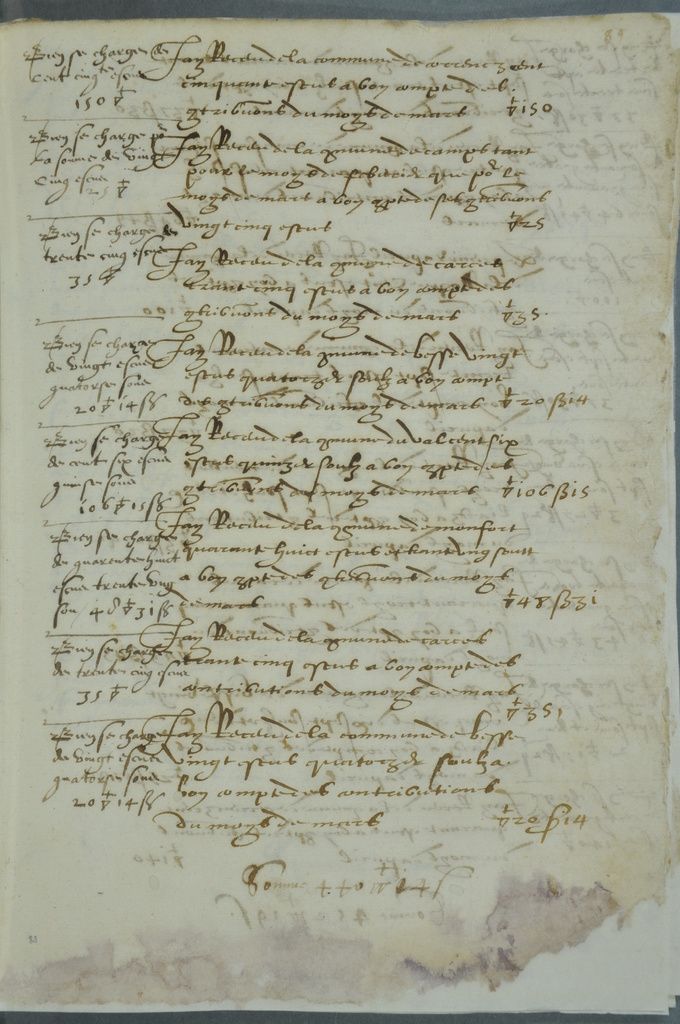 89
Bien se charge de
cent cinqte escus
150 ▽
Jay Receu de la commune de correnc zent
cinquante escus a bon compte des
contribuons du moys de mars ▽150
Bien se charge po
la somme de vingt
cinq escus
25 ▽
Jay Receu de la commune de camps tant
pour le moys de febvrier que por le
moys de mars a bon compte de ses contribuons
vingt cinq escus ▽25
Bien se charge de
trente cinq escus
35 ▽
Jay Receu de la commune de carces
trante cinq escus a bon compte des
contribuons du moys de mars ▽35
Bien se charge
de vingt escus
quatorse sous
20 ▽ 14 ß
Jay Receu de la commune de besse vingt
escus quatorze soulz a bon compt
des contribuons du moys de mars ▽20 ß14
Bien se charge
de cent six escus
quinse sous
106 ▽ 15 ß
Jay Receu de la commune du val cent six
escus quinze soulz a bon compte des
contribuons du moys de mars ▽106 ß15
Bien se charge
de quarente huit
escus trente ung
sou / 48 ▽ 31 ß
Jay Receu de la commune de monfort
quarante huict escus et trante ung soult
a bon compte des contribuons du moys
de mars ▽48 ß31
Bien se charge
de trente cinq escus
35 ▽
Jay Receu de la commune de carces
trante cinq escus a bon compte des
contributions du moys de mars
▽35
Bien se charge
de vingt escus
quatorse sous
20 ▽ 14 ß
Jay Receu de la commune de besse
vingt escus quatorze soulz a
bon compte des contributions
du moys de mars ▽20 ß14
Somme 440 ▽ 14 ß